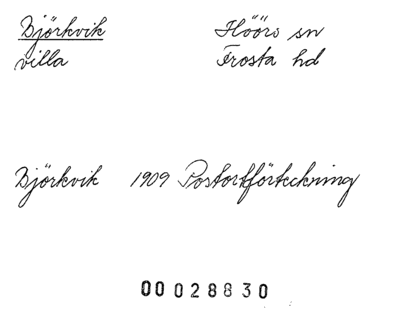 Björkvik Höörs sn
villa Frosta hd
Björkvik 1909 Postortförteckning
00028830